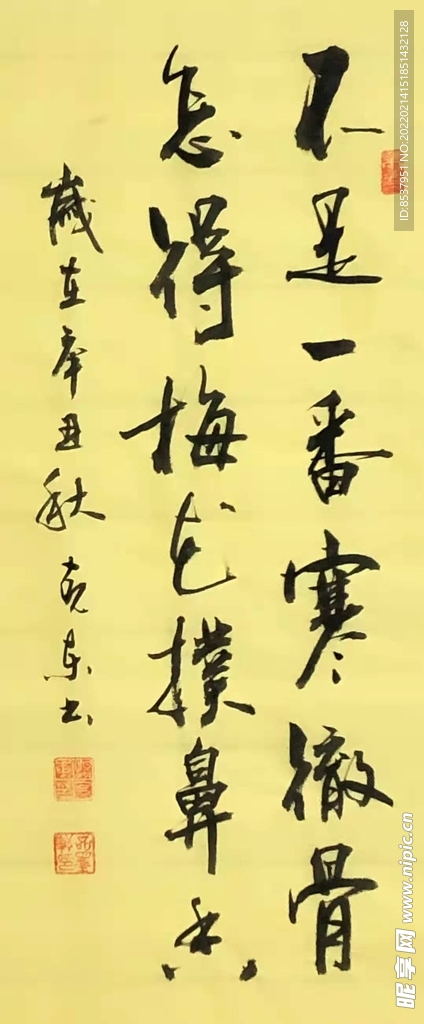 不是一番寒徹骨
怎得梅花撲鼻香
歲在辛丑秋克東書
ID:8537951 NO:20220214151851432128
昵享网 www.nipic.cn